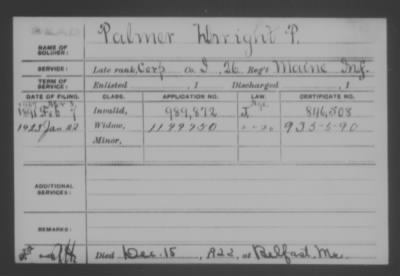 DEAD
Palmer Wright P.
NAME OF SOLDIER:
SERVICE: Late rank, Corp Co. I, 26 Reg't Maine Inf.
TERM OF SERVICE: Enlisted , 1 Discharged , 1
DATE OF FILING. CLASS. APPLICATION NO. LAW. CERTIFICATE NO.
1891 Feb 7 Invalid, 989,872 846,508
1923 Jan 22 Widow, 1199750 935-5-90
Minor,
ADDITIONAL SERVICES:
REMARKS:
Died Dec. 15, 1922, at Belfast, Me.